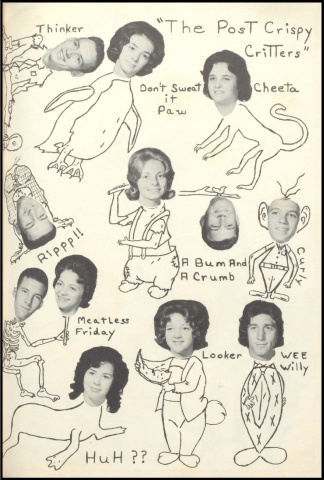 Thinker
"The Post Crispy
Critters"
Don't Sweat
it
Paw
Cheeta
Rippp!!
A Bum And
A Crumb
Curly
Meatless
Friday
Looker
WEE
Willy
HuH ??